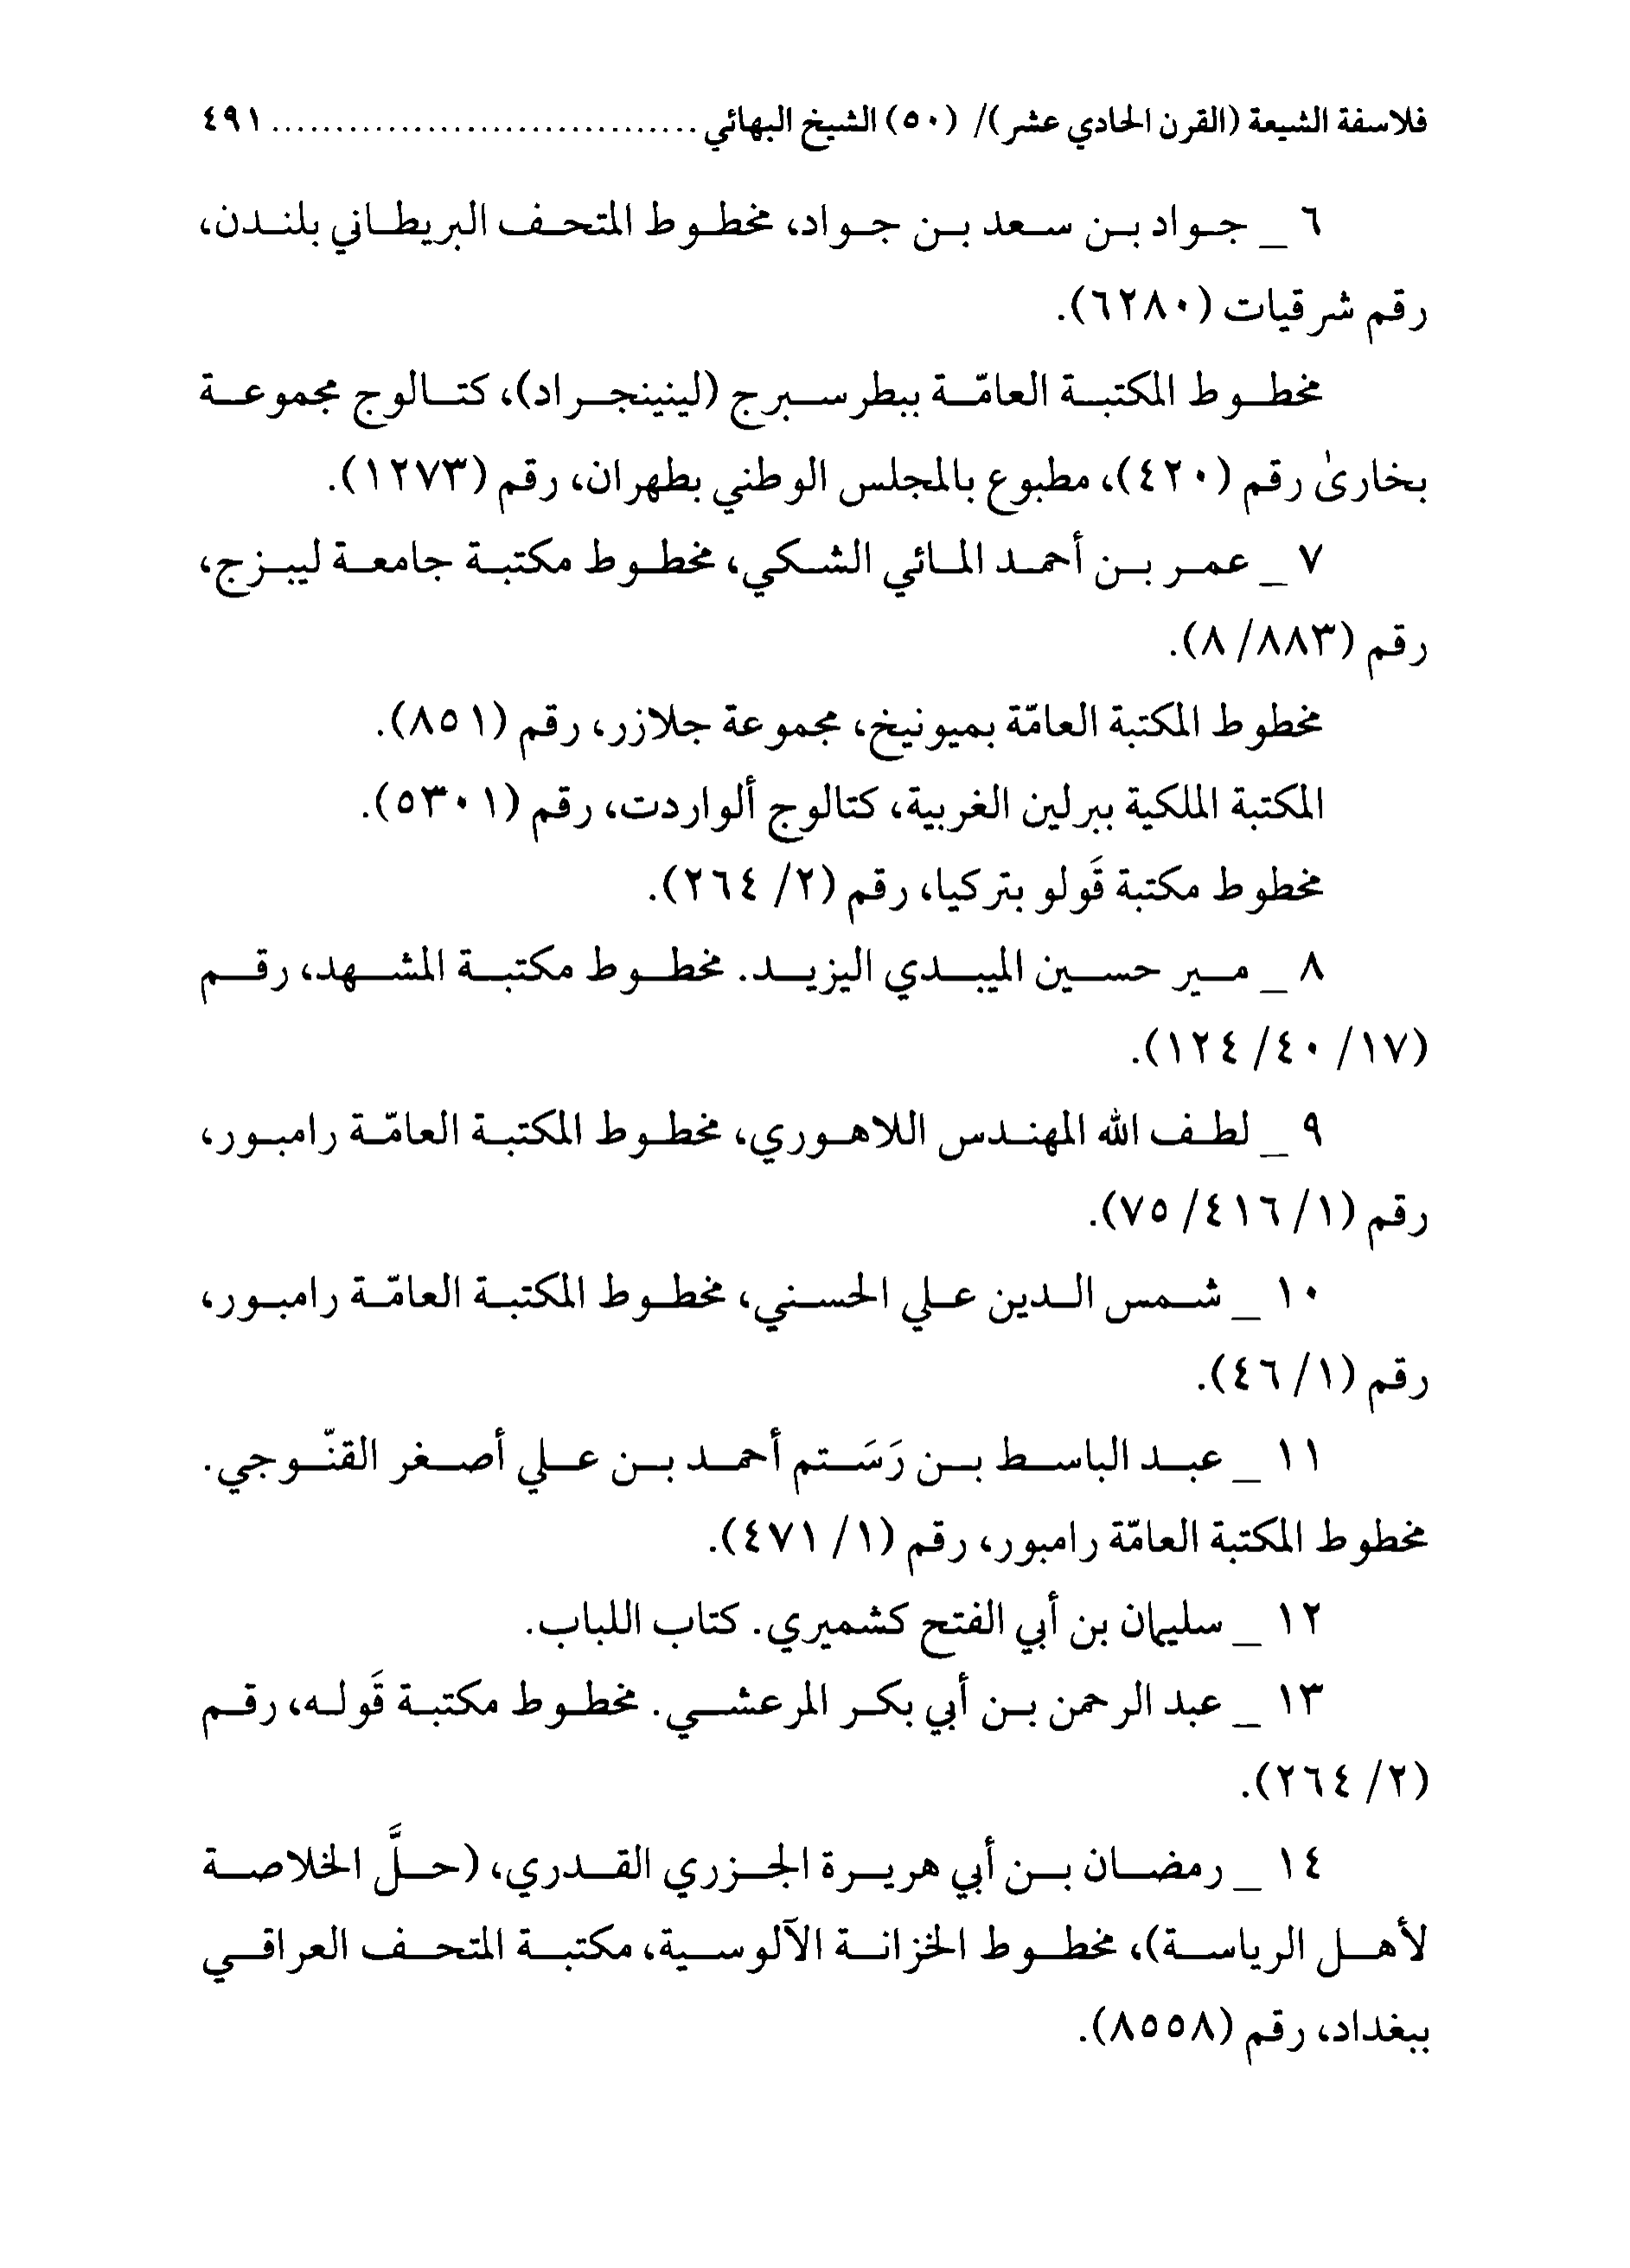 فلاسفة الشيعة (القرن الحادي عشر)/ (٥٠) الشيخ البهائي ................................. ٤٩١
٦ _ جواد بن سعد بن جواد، مخطوط المتحف البريطاني بلندن،
رقم شرقيات (٦٢٨٠).
مخطوط المكتبة العامّة ببطرسبرج (لينينجراد)، كتالوج مجموعة
بخارىٰ رقم (٤٢٠)، مطبوع بالمجلس الوطني بطهران، رقم (١٢٧٣).
٧ _ عمر بن أحمد المائي الشكي، مخطوط مكتبة جامعة ليبزج،
رقم (٨٨٣/ ٨).
مخطوط المكتبة العامّة بميونيخ، مجموعة جلازر، رقم (٨٥١).
المكتبة الملكية ببرلين الغربية، كتالوج ألواردت، رقم (٥٣٠١).
مخطوط مكتبة قَولو بتركيا، رقم (٢/ ٢٦٤).
٨ _ مير حسين الميبدي اليزيد. مخطوط مكتبة المشهد، رقم
(١٧/ ٤٠/ ١٢٤).
٩ _ لطف الله المهندس اللاهوري، مخطوط المكتبة العامّة رامبور،
رقم (١/ ٤١٦/ ٧٥).
١٠ _ شمس الدين علي الحسني، مخطوط المكتبة العامّة رامبور،
رقم (١/ ٤٦).
١١ _ عبد الباسط بن رَسَتم أحمد بن علي أصغر القنّوجي.
مخطوط المكتبة العامّة رامبور، رقم (١/ ٤٧١).
١٢ _ سليمان بن أبي الفتح كشميري. كتاب اللباب.
١٣ _ عبد الرحمن بن أبي بكر المرعشي. مخطوط مكتبة قَوله، رقم
(٢/ ٢٦٤).
١٤ _ رمضان بن أبي هريرة الجزري القدري، (حلَّ الخلاصة
لأهل الرياسة)، مخطوط الخزانة الآلوسية، مكتبة المتحف العراقي
ببغداد، رقم (٨٥٥٨).